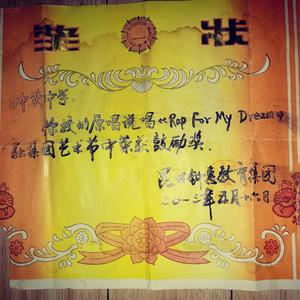 奖状
中学:
你校的原唱说唱《Rap For My Dream》
在集团艺术节中荣获鼓励奖.
教育集团
二〇一三年五月十六日